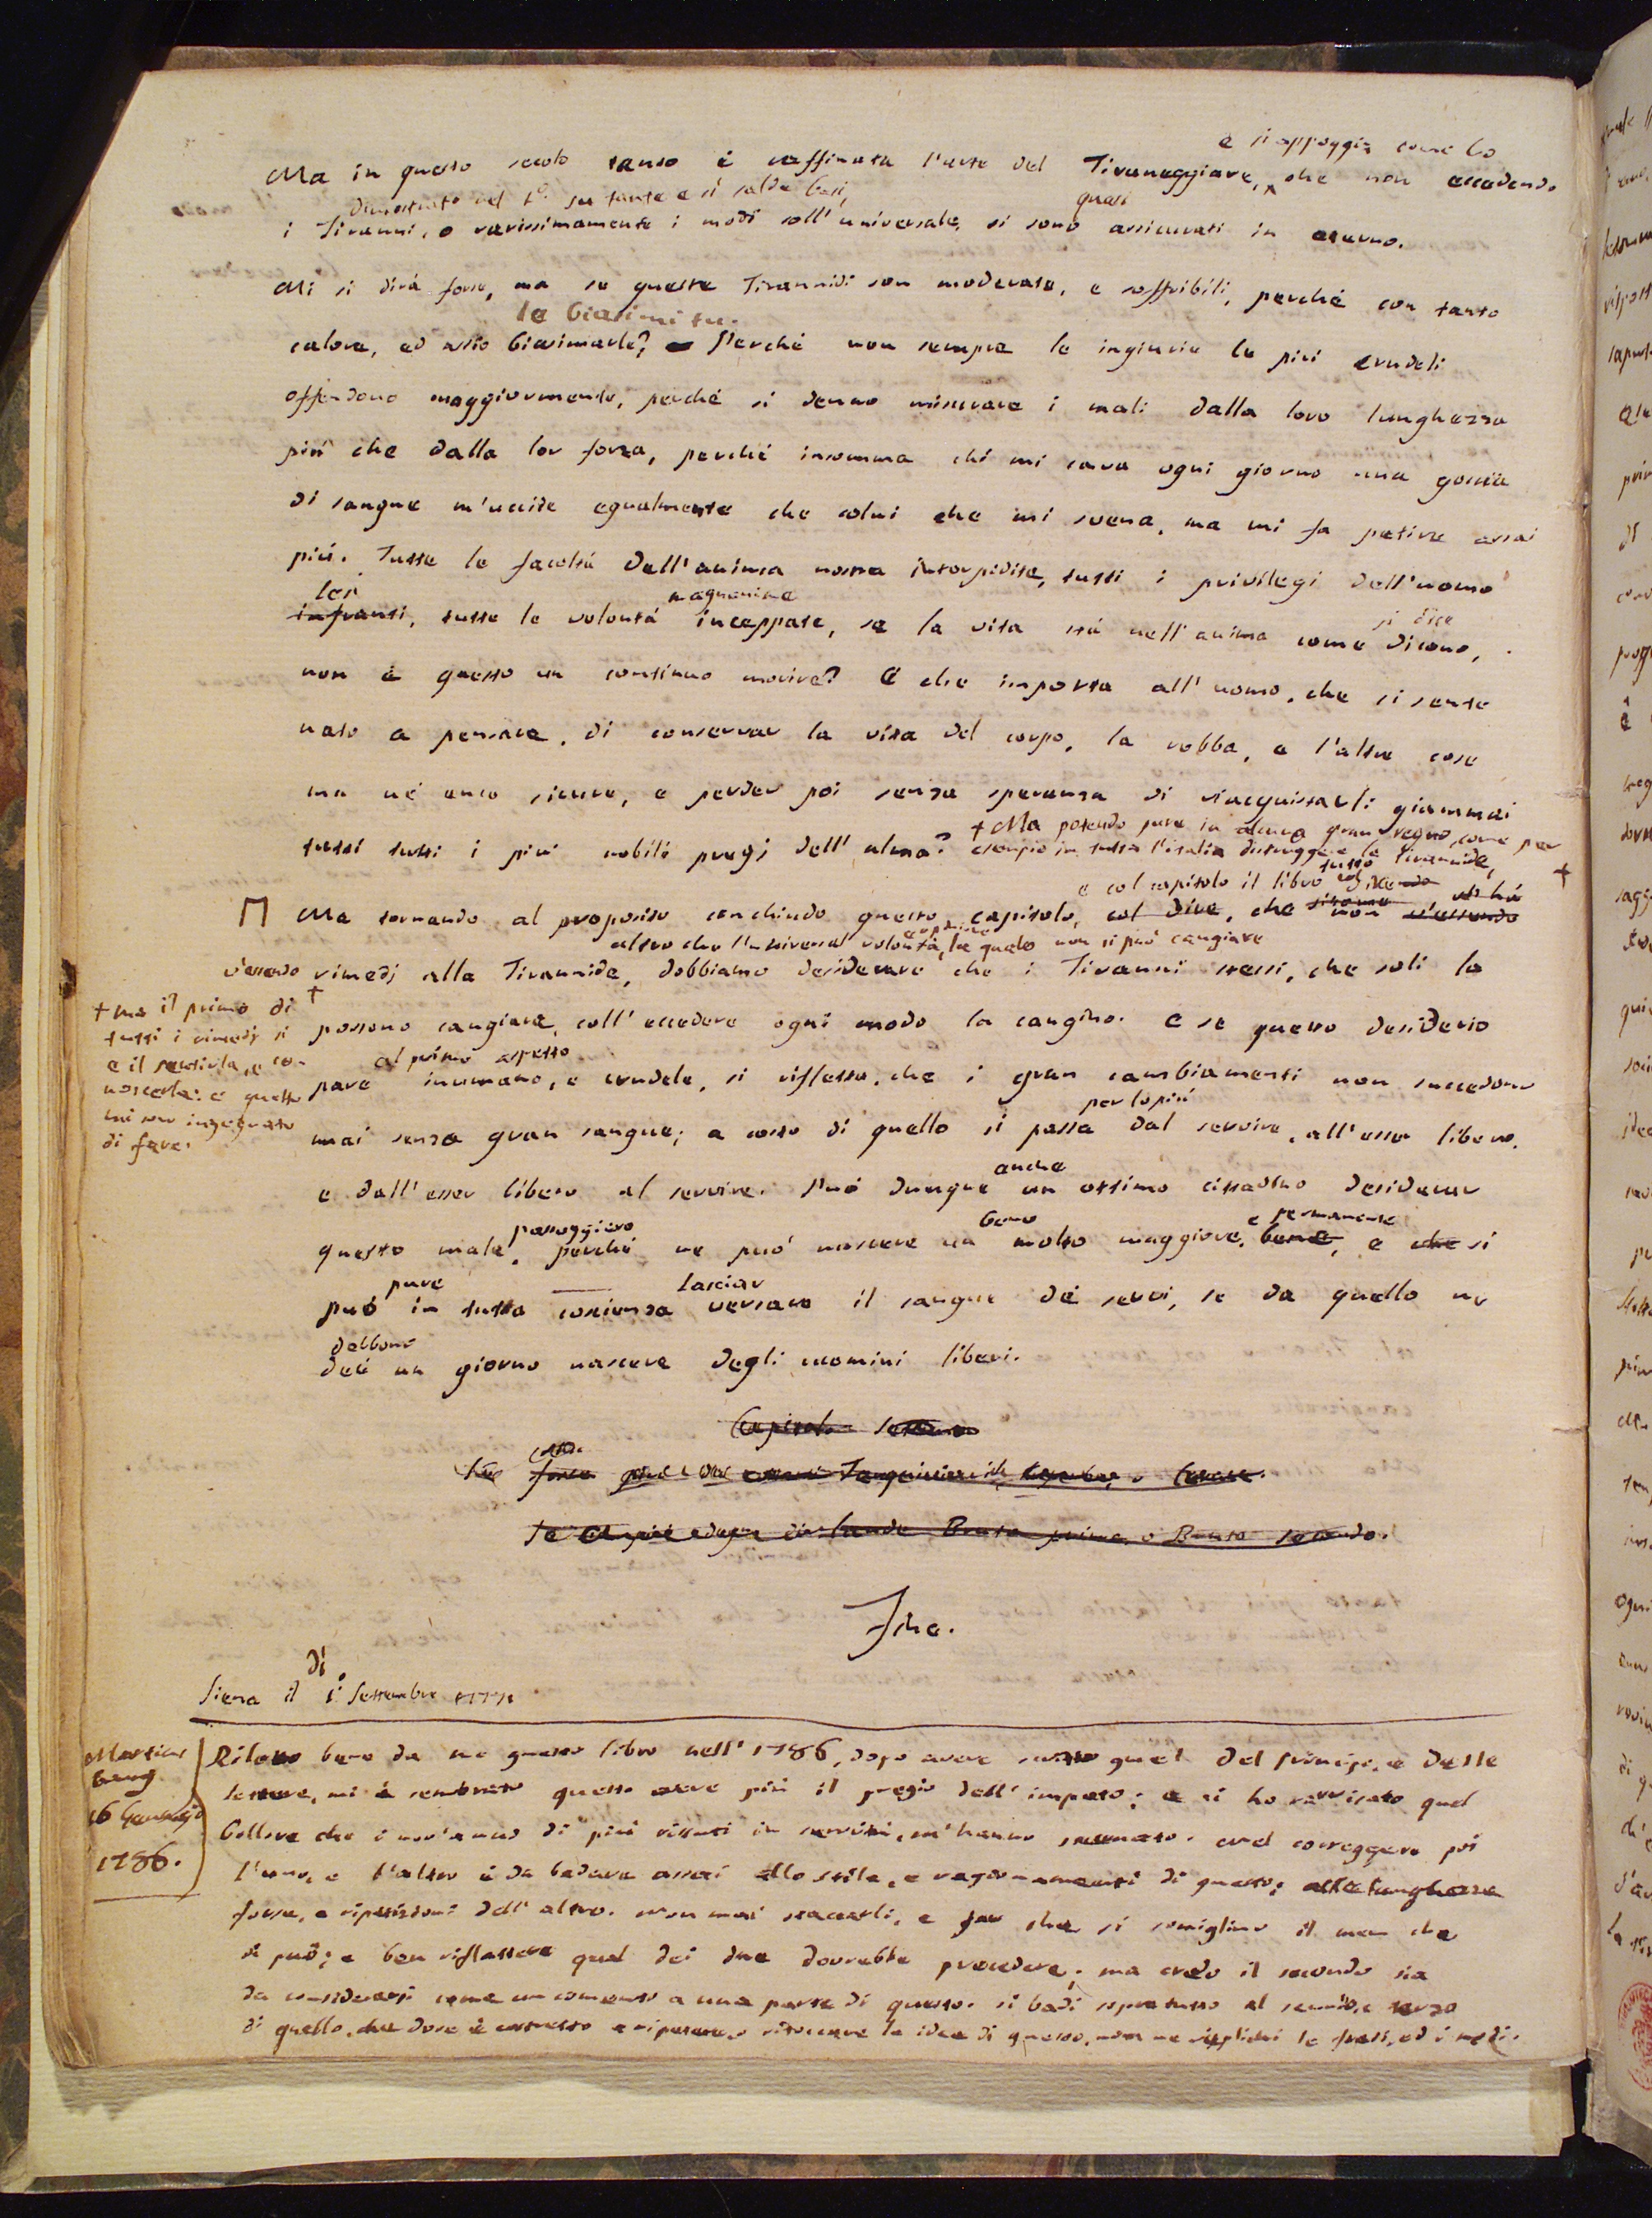 e si appoggia come ho
Ma in questo secolo tanto è raffinata l'arte del Tiranneggiare, che non eccedendo
dimostrato nel L.º su tante e sì salde basi,
quasi
i Tiranni, o rarissimamente i modi coll'universale, si sono assicurati in eterno.
Mi si dirá forse, ma se queste Tirannidi son moderate, e soffribili, perché con tanto
le biasimi tu.
calore, ed astio biasimarle? Perché non sempre le ingiurie le più crudeli
offendono maggiormente, perché si denno misurare i mali dalla loro lunghezza
più che dalla lor forza, perché insomma chi mi cava ogni giorno una goccia
di sangue m'uccide egualmente che colui che mi svena, ma mi fa patire assai
più. Tutte le facoltà dell'anima nostra intorpidite, tutti i privilegi dell'uomo
lesi
magnanime
infranti, tutte le volontá inceppate, se la vita stá nell'anima come dicono,
si dice
non è questo un continuo morire? E che importa all'uomo, che si sente
nato a pensare, di conservar la vita del corpo, la robba, e l'altre cose
ma né anco sicure, e perder poi senza speranza di riacquistarli giammai
tutti tutti i più nobili pregj dell'alma? + Ma potendo pure in alcuno gran regno, come per
esempio in tutta l'Italia distruggere la Tirannide,
e col capitolo il libro tutto col dire
+
Ma tornando al proposito conchiudo questo capitolo, col dire, che non v'essendo
altro che l'universal volontà, la quale non si può cangiare
v'essendo rimedj alla Tirannide, dobbiamo desiderare che i Tiranni stessi, che soli la
+ ma il primo di
tutti i rimedj si
e il sentirla, e co-
noscerla: e questo
mi son ingegnato
di fare.
possono cangiare, coll'eccedere ogni modo la cangino. E se questo desiderio
al primo aspetto
pare inumano, e crudele, si rifletta, che i gran cambiamenti non succedono
per lo più
mai senza gran sangue; a costo di quello si passa dal servire, all'esser libero,
anche
e dall'esser libero al servire. Può dunque un ottimo cittadino desiderar
passeggiero
bene
e permanente
questo male, perché ne può nascere un molto maggiore bene, e che si
pure
lasciar
può in tutta coscienza versare il sangue dé servi, se da quello ne
debbono
deé un giorno nascere degli uomini liberi.
Capitolo
Bruto primo, o Bruto secondo.
Fine.
dí
Siena il 1º Settembre 1777.
Martins
bourg
16 Gennajo
1786.
Riletto bene da me questo libro nell'1786, dopo avere scritto quel del Principe, e delle
lettere, mi è sembrato questo avere più il pregio dell'impeto; e ci ho ravvisato quel
bollore che i nov'anni di più vissuti in servitù, m'hanno scemato. nel correggere poi
l'uno, e l'altro è da badare assai allo stile, e ragionamenti di questo; alle lunghezze
forse, e ripetizioni dell'altro. non mai staccarli, e far che si somiglino il men che
si può; e ben riflettere qual dei due dovrebbe precedere; ma credo il secondo sia
da considerarsi come un comento a una parte di questo. si badi sopratutto al secondo, e terzo
di quello, che dove è costretto a ripetere, o ritoccare le idee di questo, non ne replichi le frasi, ed i modi.